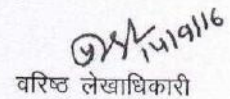 14/9/16
वरिष्ठ लेखाधिकारी